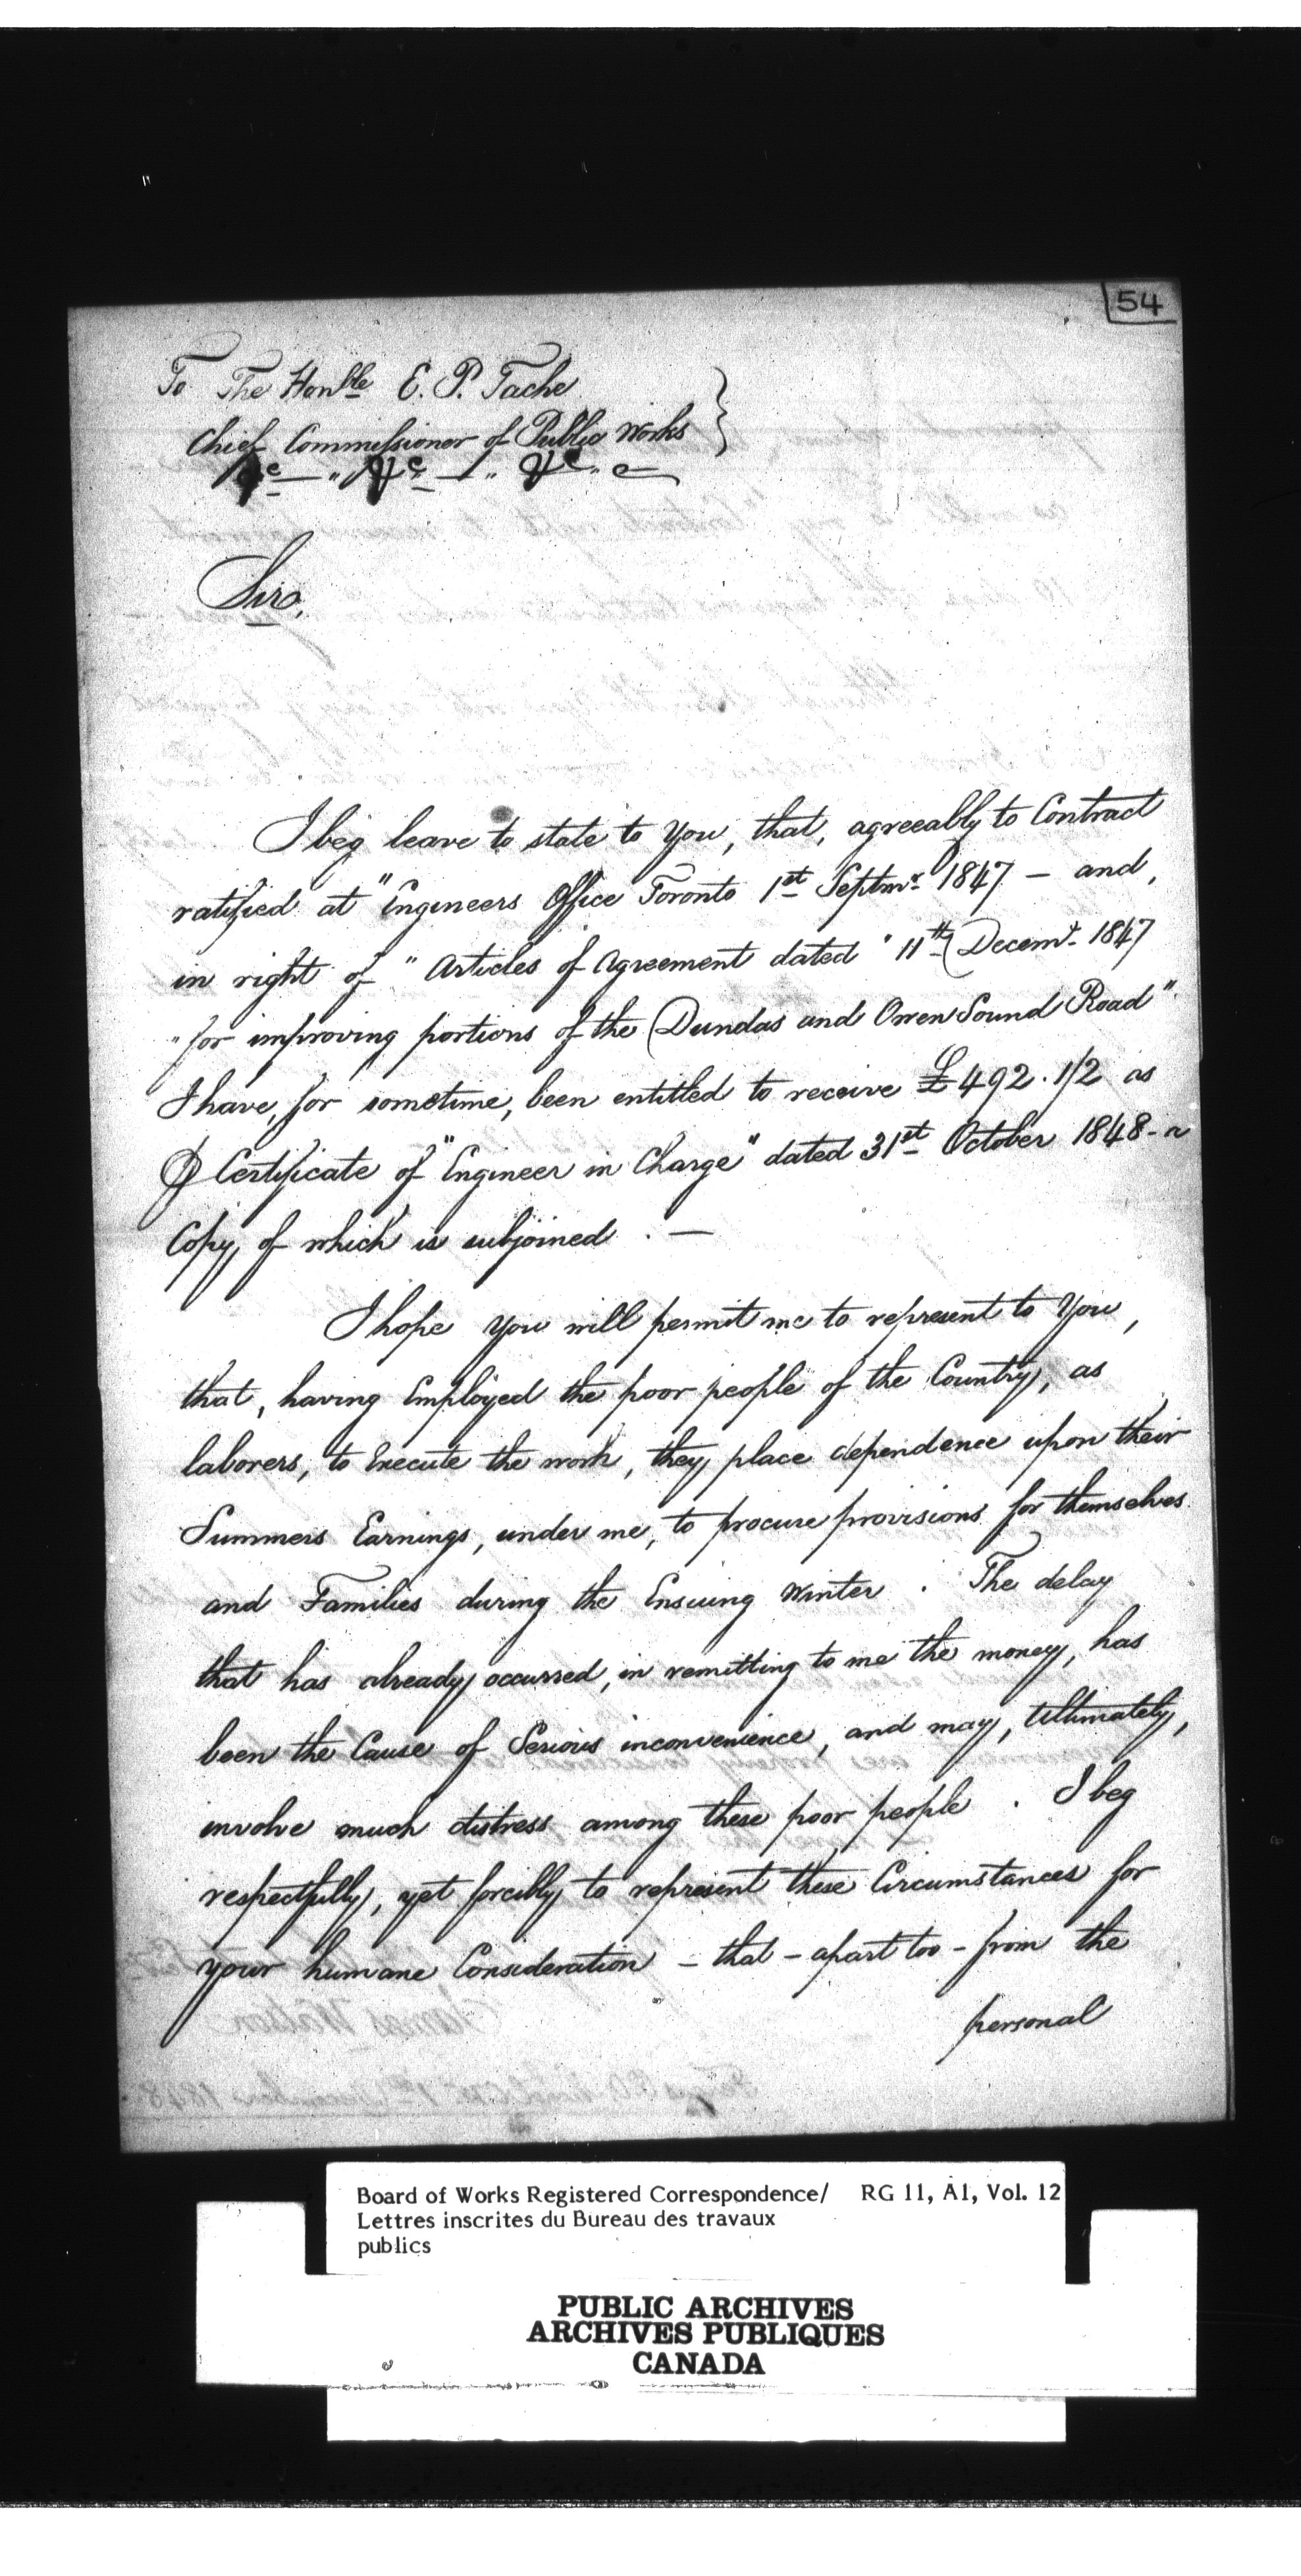 54
To The Honble E. P. Tache
Chief Commissioner of Public Works
&c — " &c — " &c "
Sir,
I beg leave to state to You, that, agreeably to Contract
ratified at "Engineers Office Toronto 1st Septmr 1847 – and,
in right of "Articles of Agreement dated "11th Decemr 1847
"for improving portions of the Dundas and Owen Sound Road"
I have, for sometime, been entitled to receive £492.1/2 as
P Certificate of "Engineer in Charge" dated 31st October 1848 - a
Copy of which is subjoined . —
I hope you will permit me to represent to You,
that, having Employed the poor people of the Country, as
laborers, to Execute the work, they place dependence upon their
Summers Earnings, under me, to procure provisions for themselves
and Families during the Ensuing Winter . The delay
that has already occurred, in remitting to me the money, has
been the Cause of Serious inconvenience, and may, Ultimately,
involve much distress among these poor people . I beg
respectfully, yet forcibly to represent these Circumstances for
your humane Consideration – that – apart too – from the
personal
Board of Works Registered Correspondence/ RG 11, A1, Vol. 12
Lettres inscrites du Bureau des travaux
publics
PUBLIC ARCHIVES
ARCHIVES PUBLIQUES
CANADA